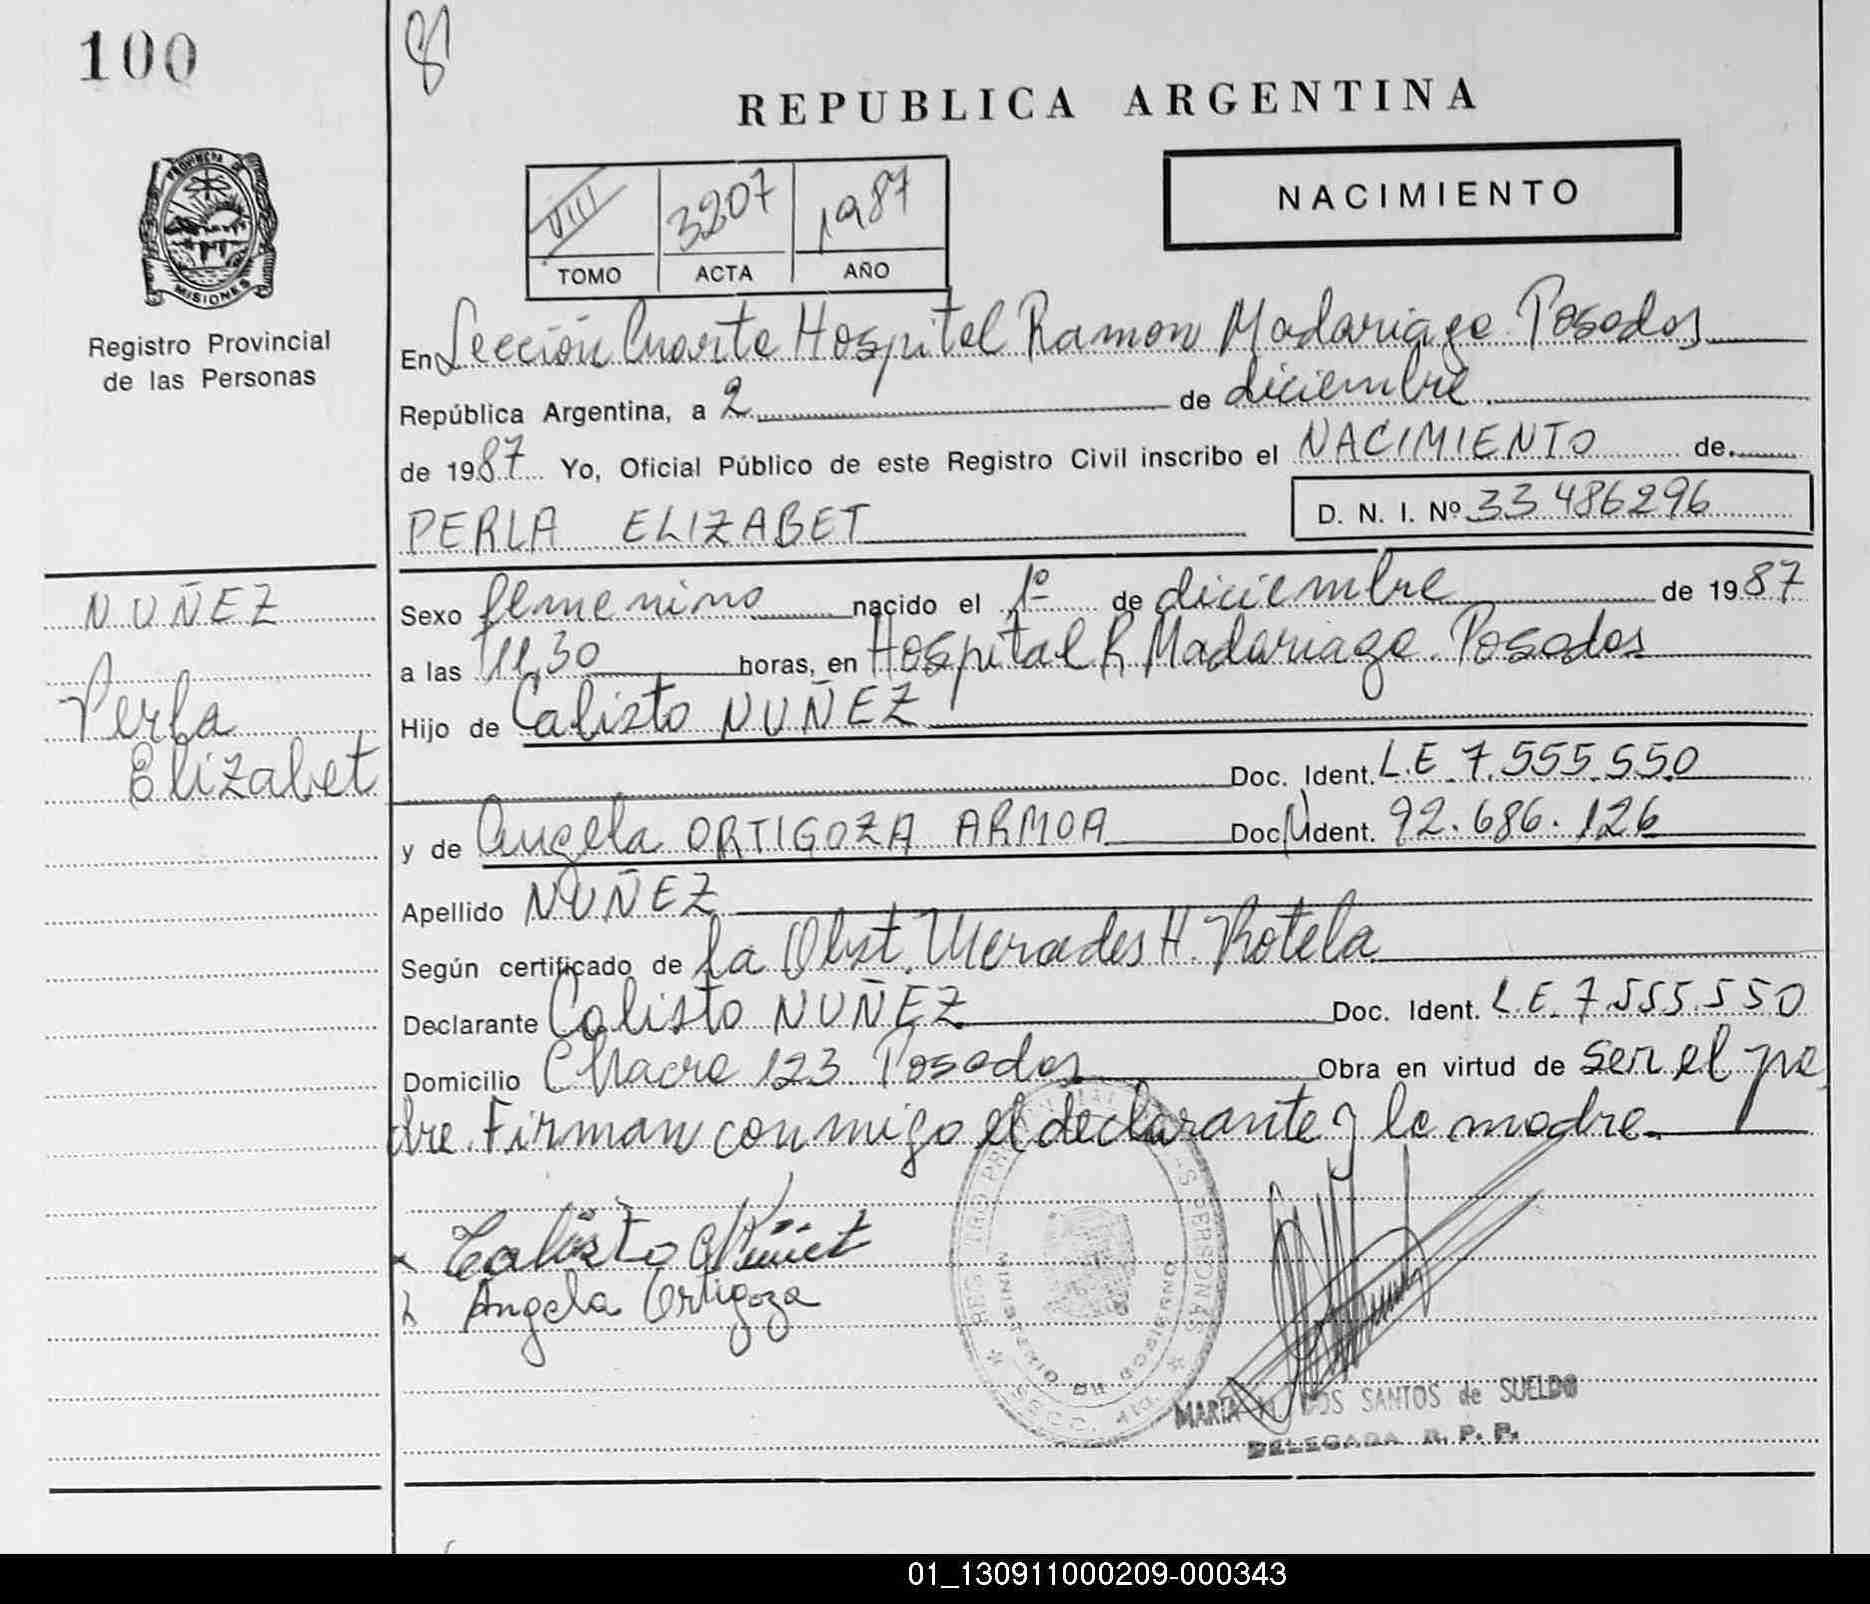 100
8
REPUBLICA ARGENTINA
PROVINCIA DE
MISIONES
Registro Provincial
de las Personas
VIII 3207 1987
TOMO ACTA AÑO
NACIMIENTO
En Sección Cuarta Hospital Ramon Madariaga Posadas
República Argentina, a 2 de diciembre
de 1987 Yo, Oficial Público de este Registro Civil inscribo el NACIMIENTO de
PERLA ELIZABET D. N. I. Nº 33 486296
NUÑEZ
Perla
Elizabet
Sexo femenino nacido el 1º de diciembre de 1987
a las 11,30 horas, en Hospital R Madariaga Posadas
Hijo de Calixto NUÑEZ
Doc. Ident. L.E 7.555.550
y de Angela ORTIGOZA ARMOA Doc. Ident. 92.686.126
Apellido NUÑEZ
Según certificado de la Obst. Mercedes H. Rotela
Declarante Calixto NUÑEZ Doc. Ident. L.E. 7.555.550
Domicilio Chacra 123 Posadas Obra en virtud de ser el pa
dre. Firman conmigo el declarante y la madre.
Calisto Nuñez
Angela Ortigoza
MINISTERIO DE GOBIERNO
MARIA DOS SANTOS de SUELDO
DELEGADA R. P. P.
01_130911000209-000343